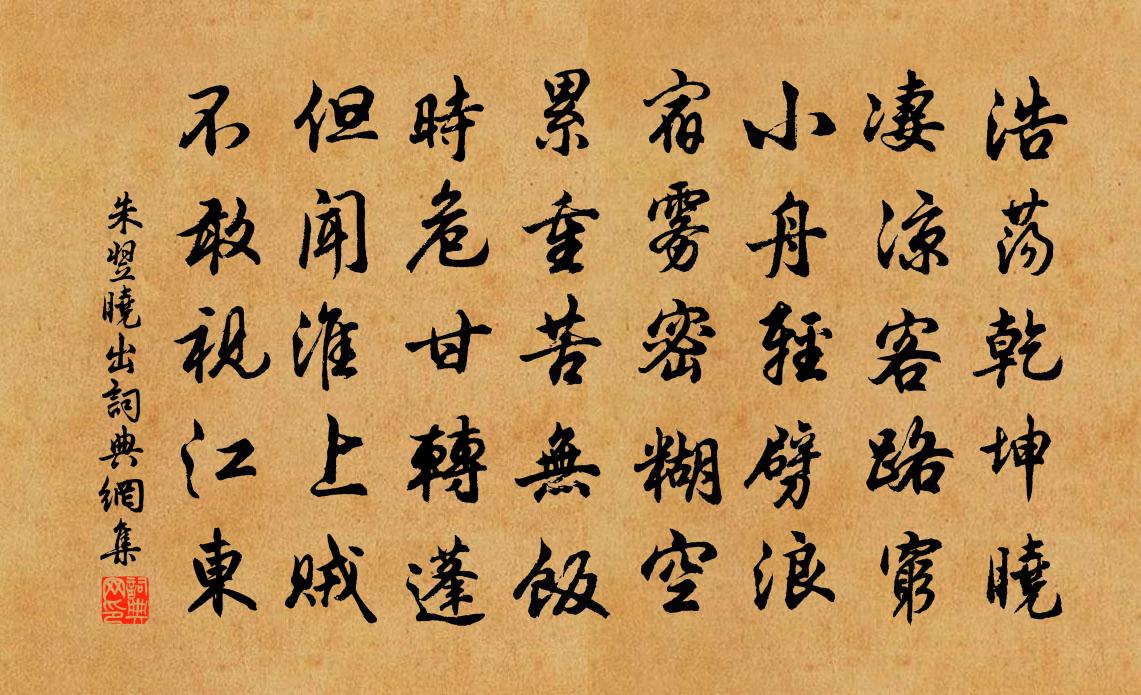 浩蕩乾坤曉
淒涼客路窮
小舟輕劈浪
宿雾密糊空
累重苦無飯
時危甘轉蓬
但闻淮上贼
不敢視江東
朱翌曉出詞典網集
詞典网印